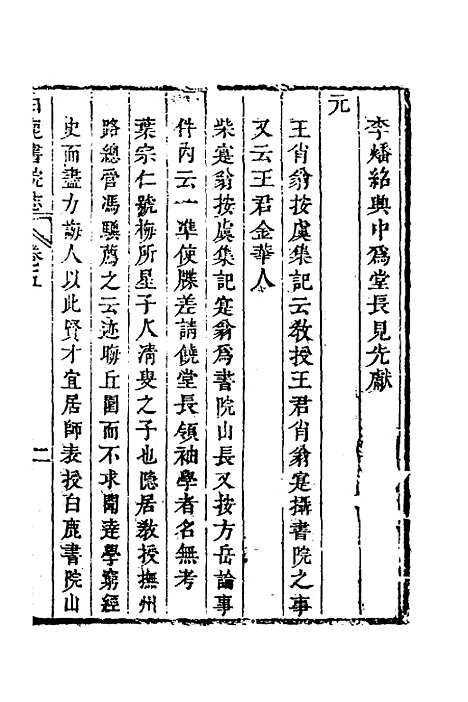 李燔紹興中爲堂長見先獻
元
王肖翁按虞集記云敎授王君肖翁寔攝書院之事
又云王君金華人
柴寔翁按虞集記寔翁爲書院山長又按方岳論事
件內云一準使牒差請饒堂長領袖學者名無考
葉宗仁號梅所星子人淸叟之子也隱居敎授撫州
路總管馮驥薦之云迹聯丘園而不求聞達學窮經
史而盡力誨人以此賢才宜居師表授白鹿書院山
白鹿書院志 卷五 二